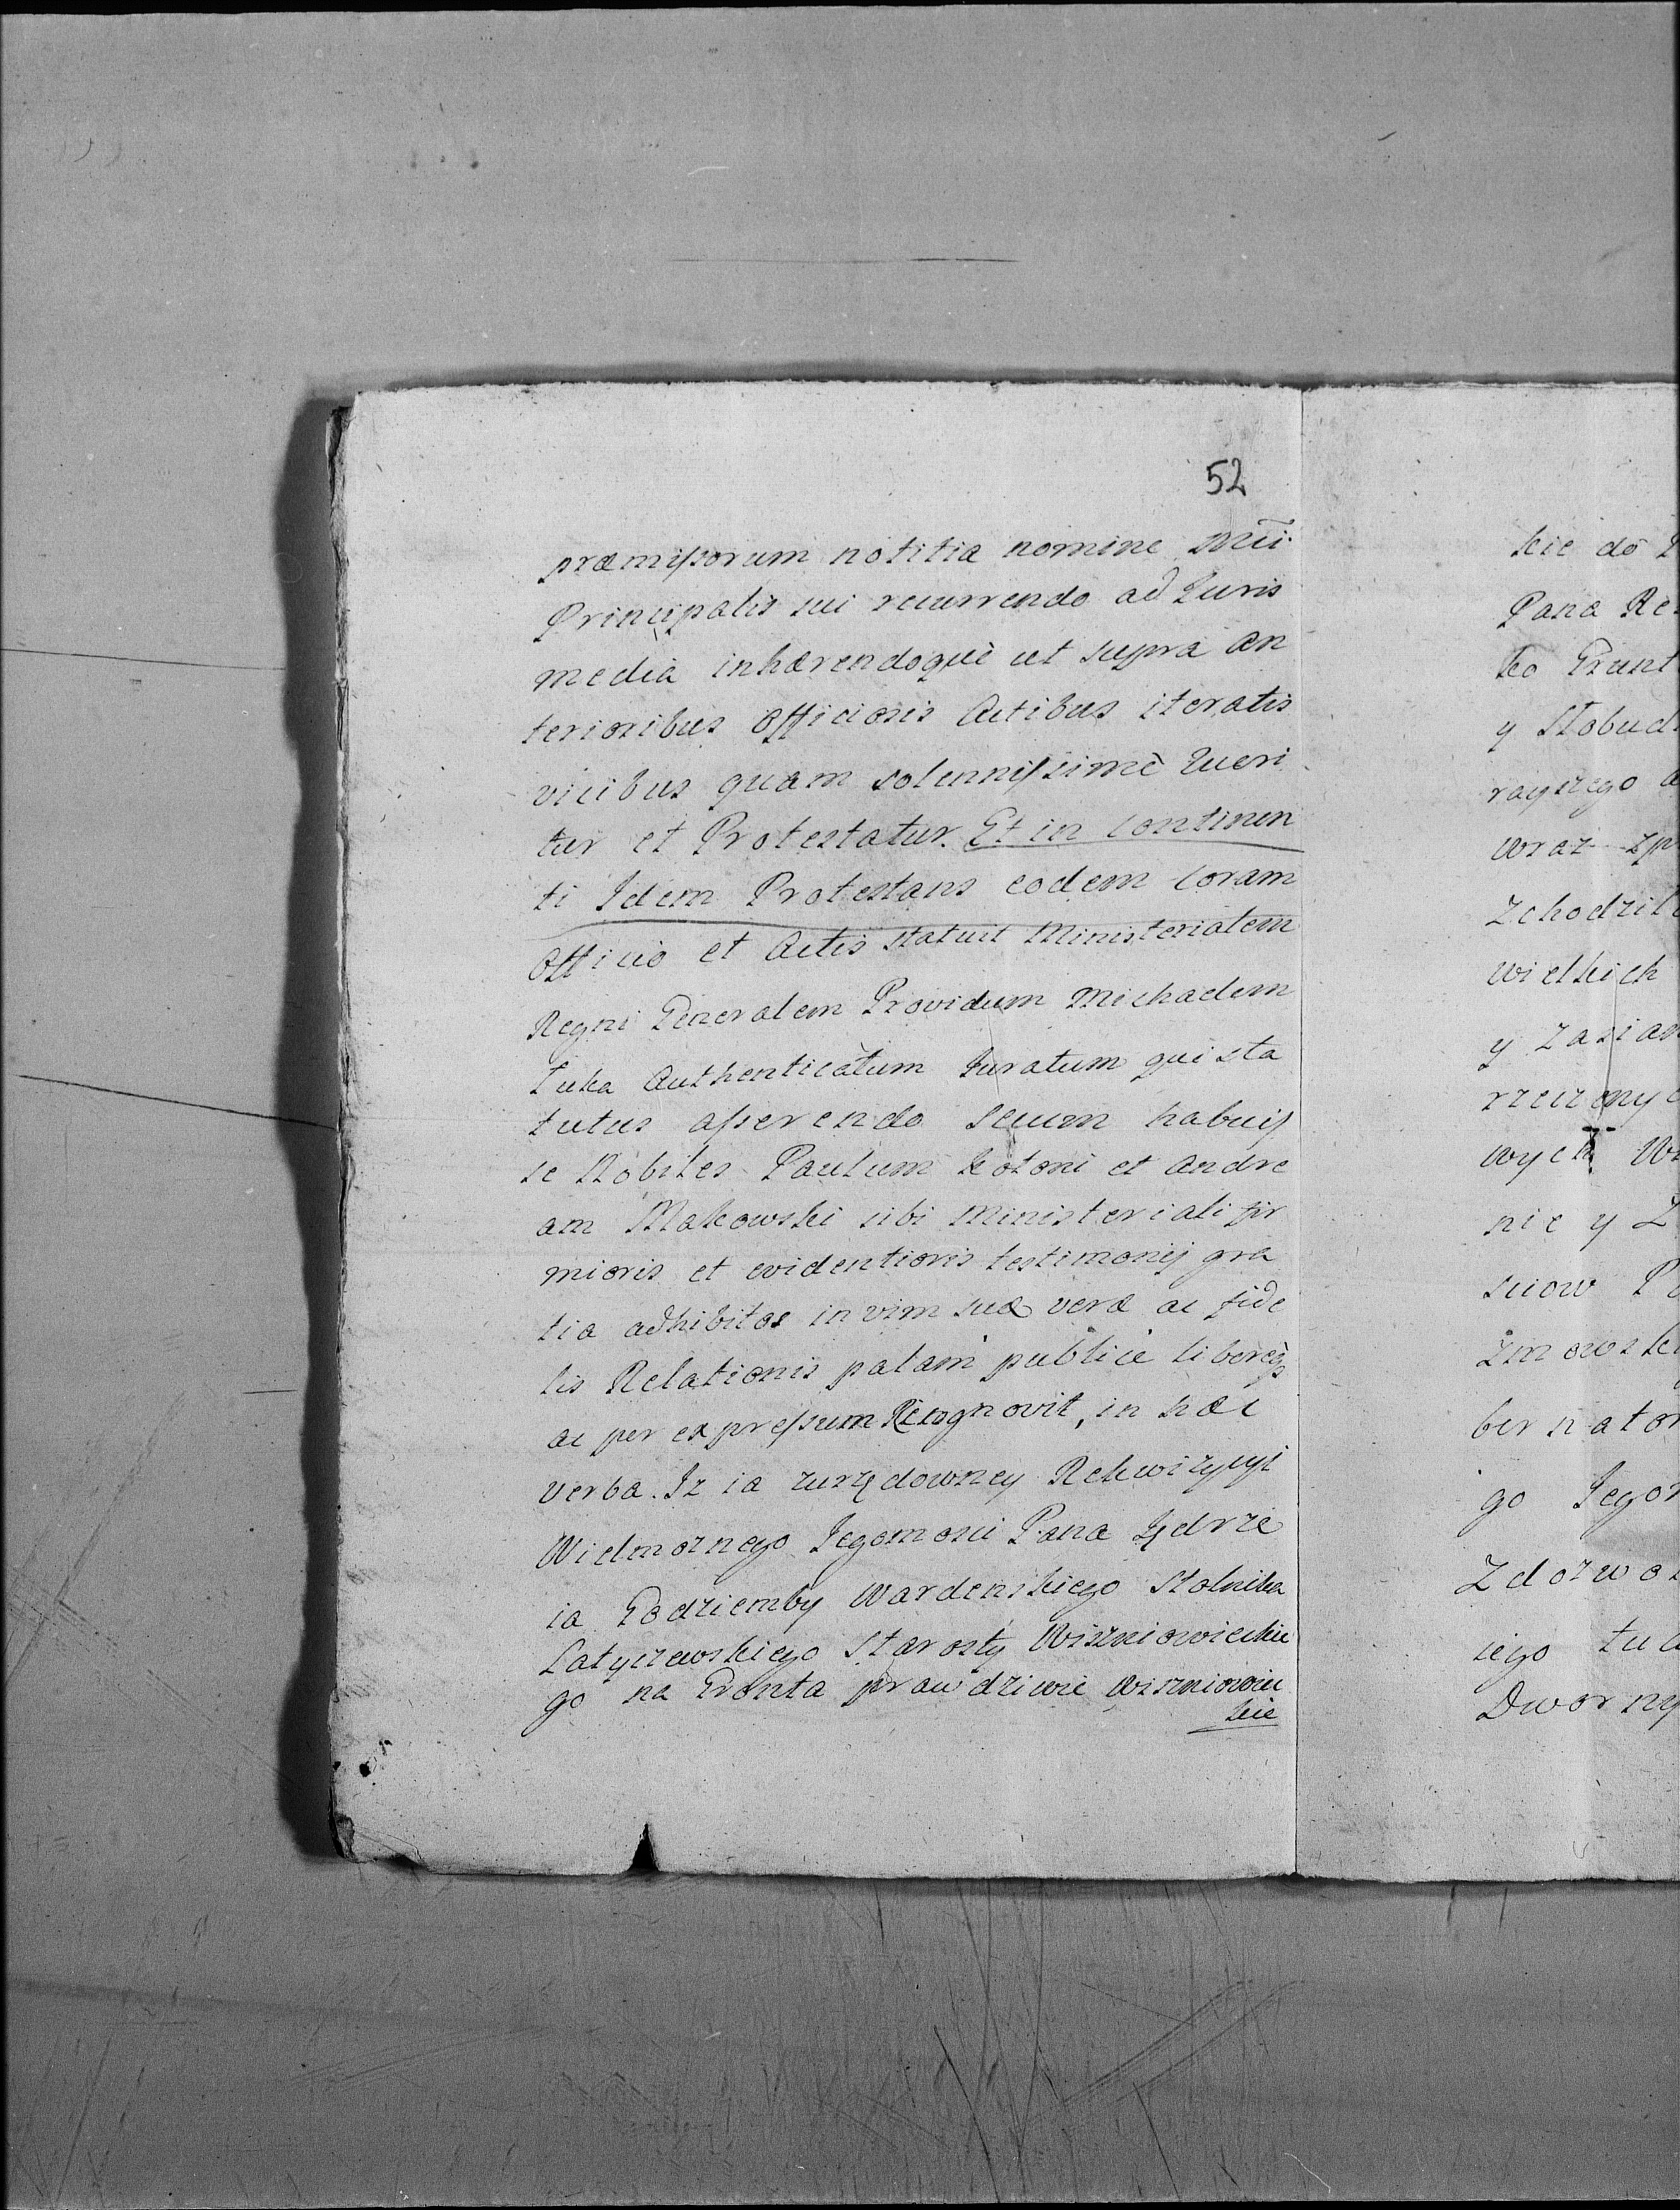 52
præmissorum notitia nomine Mti
Principalis sui recurrendo ad Juris
media inhærendoquè ut supra an
terioribus Officiosis Actibus iteratis
vicibus quam solennissimè Queri
tur et Protestatur. Et in continen
ti Idem Protestans eodem coram
Officio et Actis statuit Ministerialem
Regni Generalem Providum Michaelem
Luka Authenticatum Juratum qui sta
tutus asserendo secum habuis
se Nobiles Paulum Kotoni et Andre
am Makowski sibi Ministeriali fir
mioris et evidentioris testimonij gra
tia adhibitos in vim suæ veræ ac fide
lis Relationis palam publice libereq
ac per expressum Recognovit, in hæc
verba. Iz ia zurzędowney Rekwizycyi
Wielmoznego Jegomosci Pana Jędrze
ia Godziemby Wardenskiego Stolnika
Latyczewskiego Starosty Wiszniowieckie
go na Gronta prawdziwie Wiszniowiec
kie
kie do
Pana Re
ko Grunt
y Słobud
wraz zp
zchodzil
wielkich
y zasian
wych
nie y Z
sciow
bernator
go Jegom
iego tu
Dworny